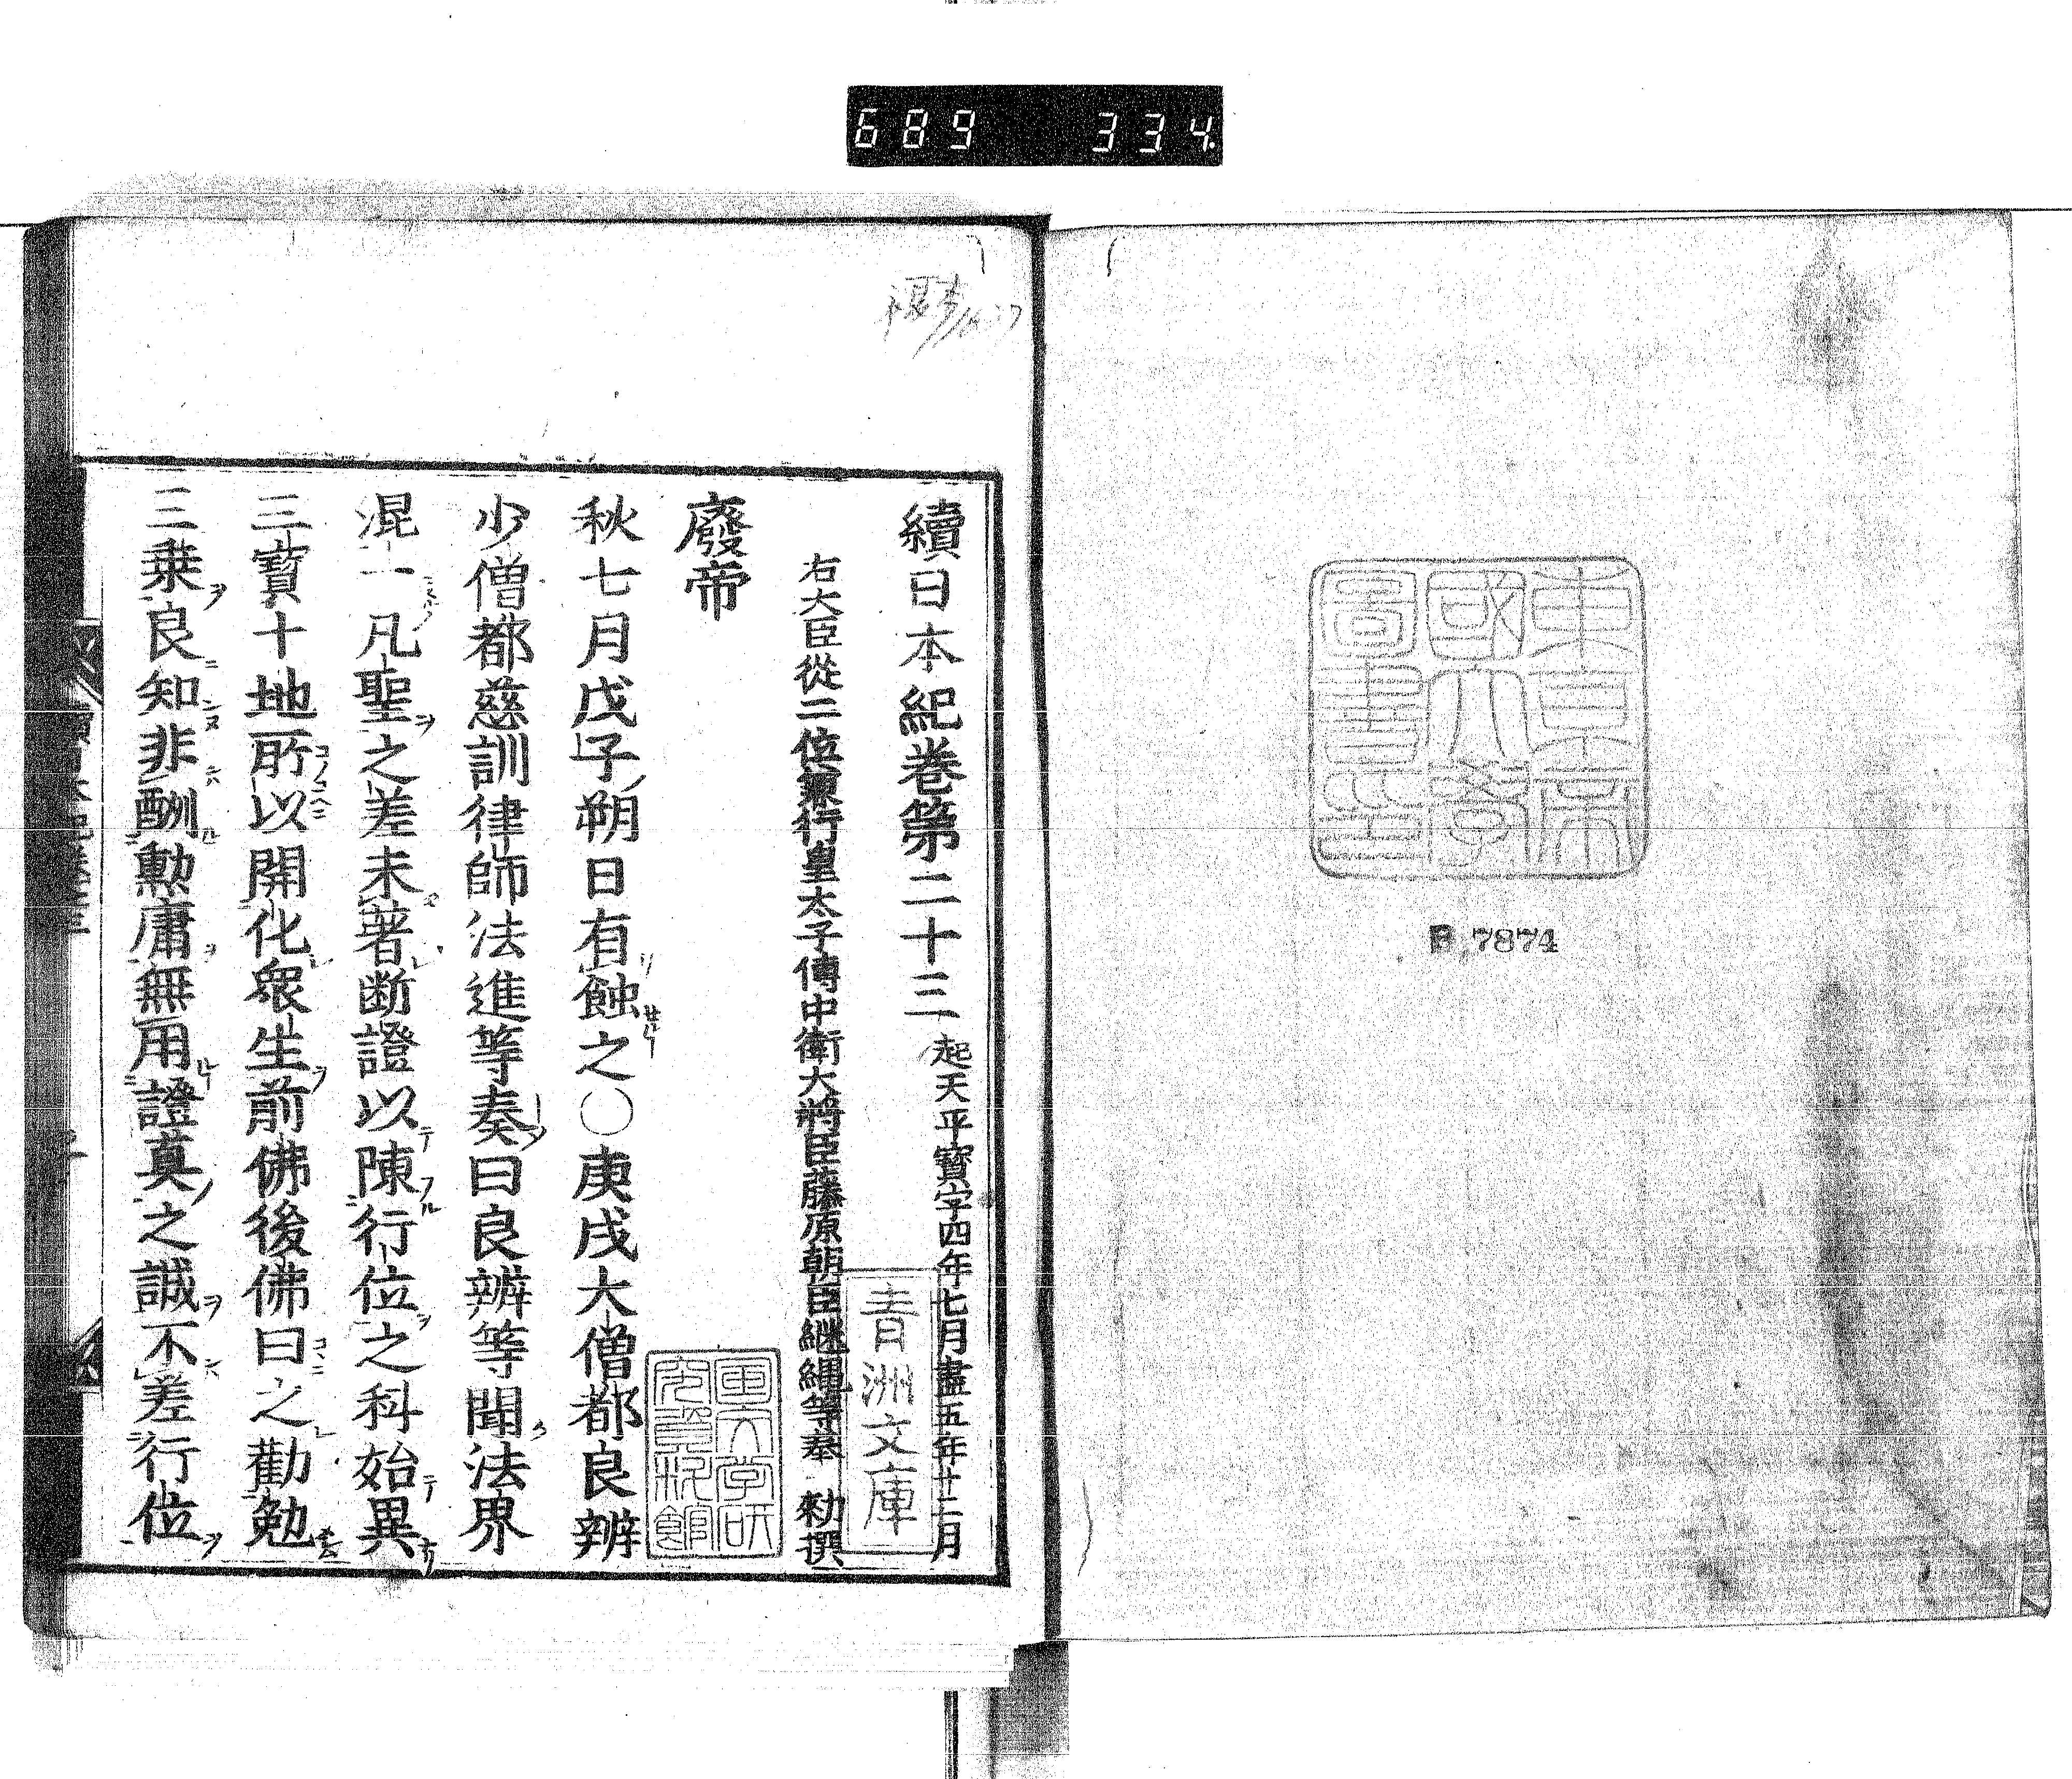 689 334.
東京帝
國大學
圖書印
B 7874
續日本紀卷第二十三 起天平寶字四年七月盡五年廿二月
右大臣從二位兼行皇太子傳中衛大將臣藤原朝臣繼繩等奉 勅撰
青洲文庫
廢帝
秋七月戊子朔日有蝕之○庚戌大僧都良辨
少僧都慈訓律師法進等奏曰良辨等聞法界
混一凡聖之差未著斷證以陳行位之科始異
三寶十地所以開化衆生前佛後佛曰之勸勉
三乗良知非酬勲庸無用證真之誠不差行位